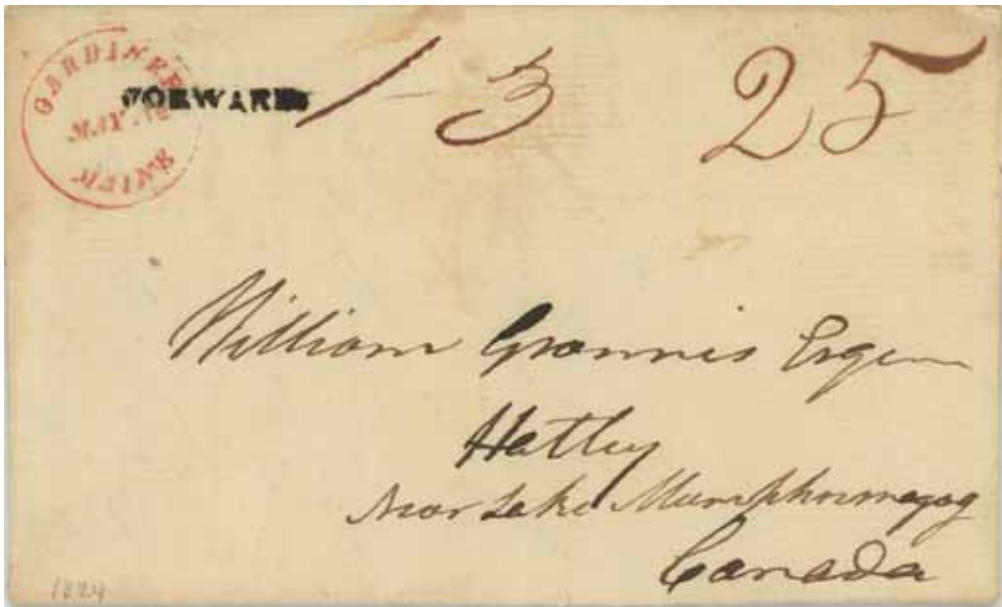 GARDINER
MAY
MAINE
FORWARD
1-3
25
William Grannis Esqr
Hatley
Near Lake Mumphrumagog
Canada
1824